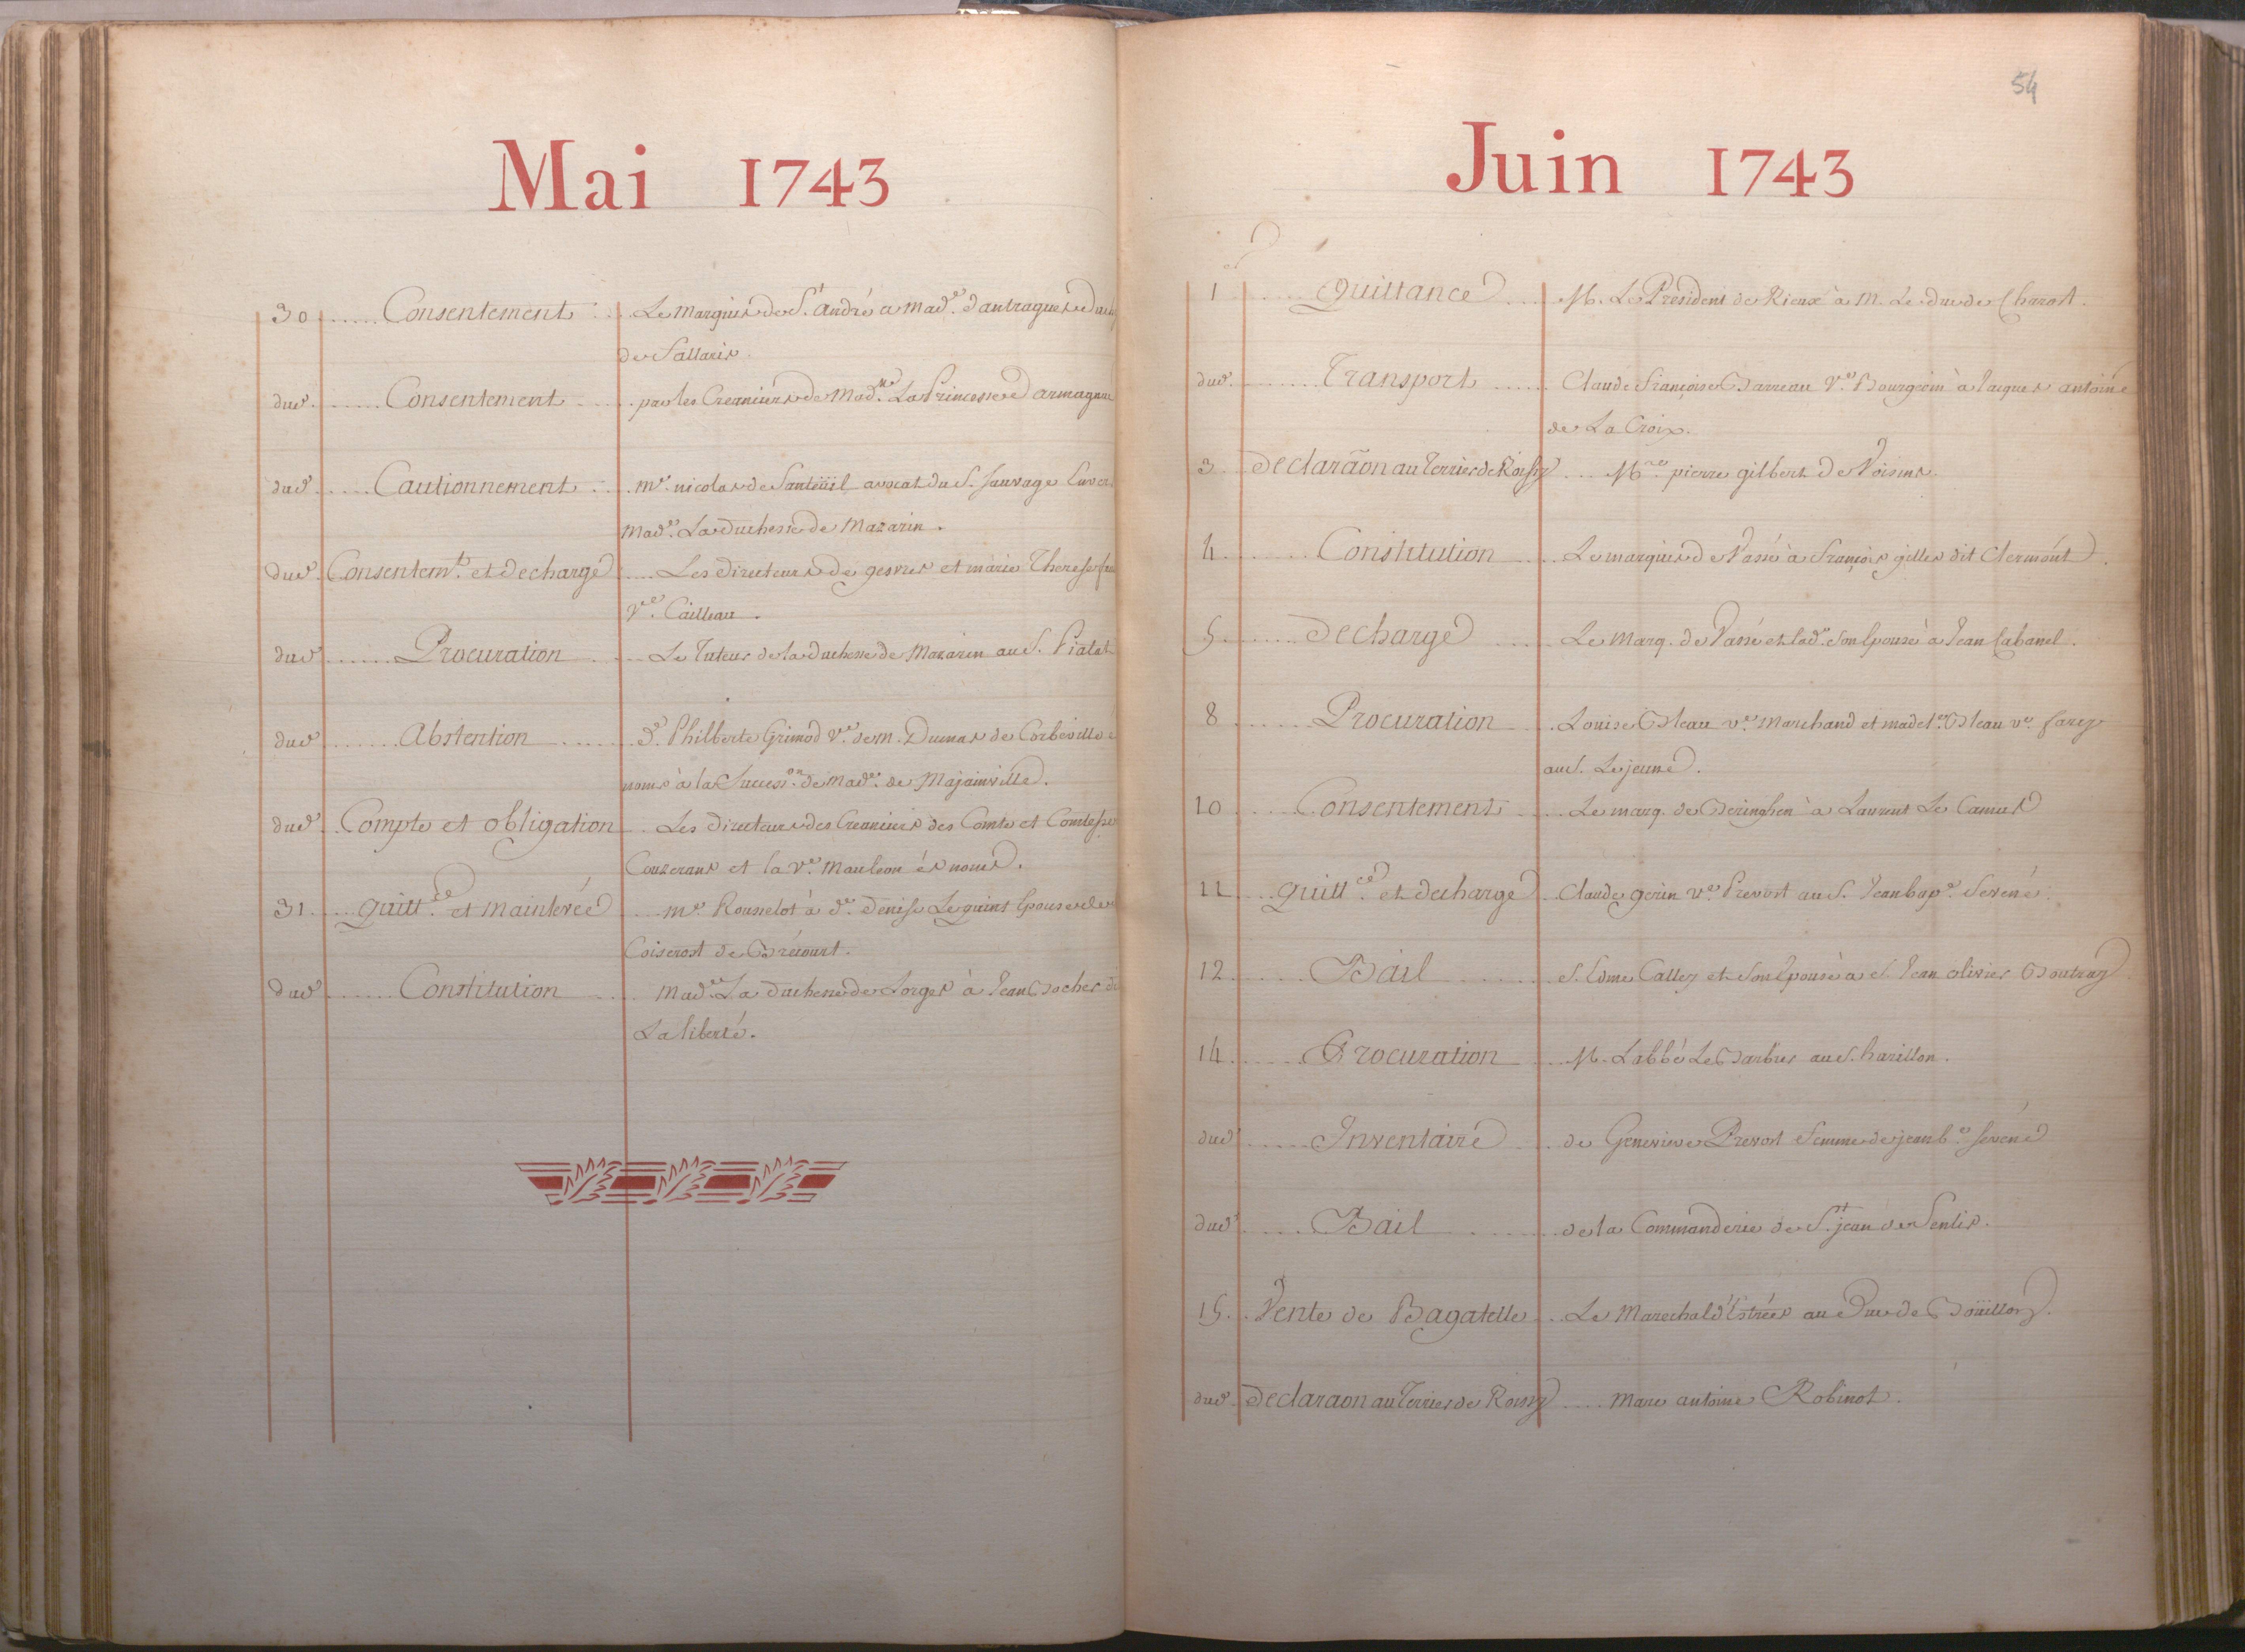 Mai 1743
30 ..... Consentement ... Le marquis de St. André a made. d'antragues
de Fallaris.
dud. ..... Consentement ..... par les Creanciers de Made. La Princesse d'armagnac
dud. ..... Cautionnement ... me. nicolas de Santeüil avocat du S. Sauvage
made. La duchesse de Mazarin.
dud. Consentemt. et decharge .... Les directeurs de gesvres et marie Therese
Ve. Cailleau.
dud. ..... Procuration .... Le Tuteur de la duchesse de Mazarin au S. Pialat
dud. ..... Abstention ....... De. Philberte Grimod Ve. de m. Dumas de Corbeville
noms à la Success.on de made. de Majainville.
dud. Compte et obligation . Les directeurs des Creanciers des Comte et Comtesse
Couserans et la Ve. Mauleon és noms.
31 .... quittce. et mainlevée .... me. Rousselot à de. Denise Lequint Epouse
Coiserost de Brecourt.
dud. ..... Constitution .... made. La duchesse de Lorges à Jean Bocher
La liberté.
54
Juin 1743
1 .... Quittance .... M. Le President de Rieux à M. Le duc de Charost.
dud. ....... Transport ..... Claude Françoise Barreau Ve. Bourgoin à Jacques antoine
de La Croix.
3 . declaraõn au Terrier de Roissy .... Mre. pierre gilbert de Voisins.
4 ....... Constitution .... Le marquis de Vassé à François gilles dit Clermont.
5 ...... decharge .... Le Marq. de Vassé et lade. son Epouse à Jean Cabanel.
8 ..... Procuration .... Louise Bleau ve. marchand et madele. Bleau ve. farcy
au S. Lejeune.
10 .... Consentement .... Le marq. de Beringhen à Laurent Le Camus
11 ... quittce. et decharge . Claude gerin ve. Prevost au S. Jean bape. Sevené.
12 ...... Bail ...... S. Edme Calley et son Epouse à S. Jean olivier Boutray
14 ...... Procuration .... M. L'abbé Le Barbier au S. harillon.
dud. ..... Inventaire .... de Genevieve Prevost femme de jean be. sevené
dud. .... Bail ....... de la Commanderie de St. jean de Senlis.
15 .. Vente de Bagatelle .. Le Marechal d'Estrées au Duc de Boüillon.
dud. declaraon au Terrier de Roissy .... Marc antoine Robinot.